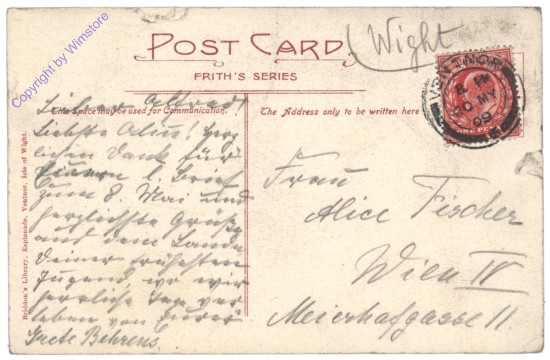 Copyright by Wimstore
POST CARD
FRITH'S SERIES
Wight
VENTNOR
MY
09
ONE PENNY
This Space may be used for Communication.
The Address only to be written here
Briddon's Library, Esplanade, Ventnor, Isle of Wight.
Lieber Alfred!
Liebste Alice! Herz-
lichen Dank für
Euren l. Brief
zum 8. Mai und
herzlichste Grüße
aus dem Lande
Deiner frühesten
Jugend, wo wir
herrliche Tage ver
leben von Eurer
Grete Behrens.
Frau
Alice Fischer
Wien IV
Meierhofgasse 11.